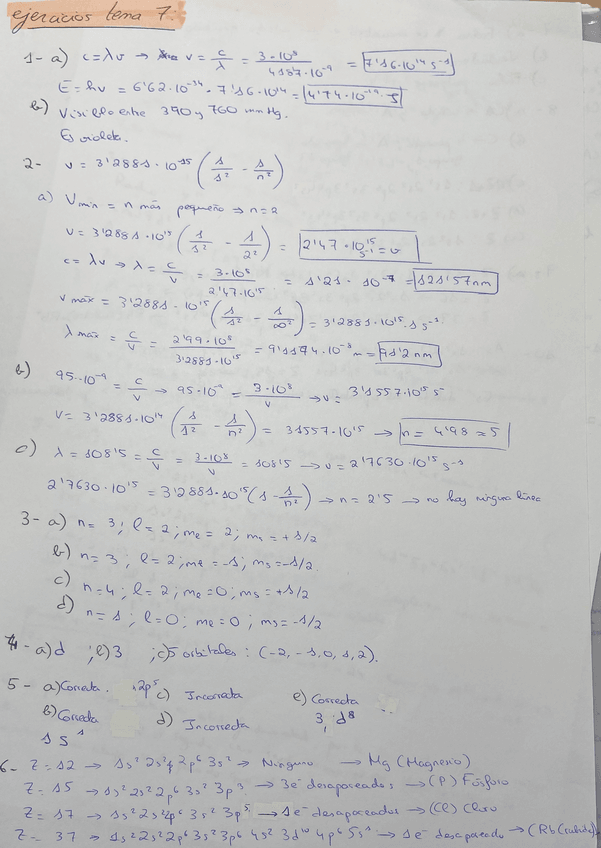 ejercicios tema 7:
1- a) c=λν → ν = c/λ = 3·10⁸/4187·10⁻⁹ = 7'16·10¹⁴ s⁻¹
E = hν = 6'62·10⁻³⁴ · 7'16·10¹⁴ = 4'74·10⁻¹⁹ J
b) Visible entre 390 y 760 mmHg.
Es violeta.
2- ν = 3'2881·10⁻¹⁵ (1/1² - 1/n²)
a) νmin = n más pequeño ⇒ n=2
ν = 3'2881·10¹⁵ (1/1² - 1/2²) = 2'47·10¹⁵ s⁻¹ = ν
c=λν → λ = c/ν = 3·10⁸/2'47·10¹⁵ = 1'21·10⁻⁷ = 121'57nm
νmáx = 3'2881·10¹⁵ (1/1² - 1/∞²) = 3'2881·10¹⁵ s⁻¹
λmáx = c/ν = 2'99·10⁸/3'2881·10¹⁵ = 9'1174·10⁻⁸ m = 91'2 nm
b) 95·10⁻⁹ = c/ν → 95·10⁻⁹ = 3·10⁸/ν → ν = 3'1557·10¹⁵ s⁻
ν = 3'2881·10¹⁴ (1/1² - 1/n²) = 31557·10¹⁵ → n = 4'98 ≈ 5
c) λ = 108'5 = c/ν = 3·10⁸/ν = 108'5 → ν = 2'7630·10¹⁵ s⁻¹
2'7630·10¹⁵ = 3'2881·10¹⁵ (1 - 1/n²) → n = 2'5 → no hay ninguna línea
3- a) n=3; l=2; me=2; ms=+1/2
b) n=3; l=2; me=-1; ms=-1/2
c) n=4; l=2; me=0; ms=+1/2
d) n=1; l=0; me=0; ms=-1/2
4- a) d ; b) 3 ; c) 5 orbitales: (-2, -1, 0, 1, 2).
5- a) Correcta. 2p⁵ c) Incorrecta e) Correcta
b) Correcta d) Incorrecta 3, d⁸
1s¹
6- Z=12 → 1s² 2s² 2p⁶ 3s² → Ninguno → Mg (Magnesio)
Z=15 → 1s² 2s² 2p⁶ 3s² 3p³ → 3e⁻ desapareados → (P) Fósforo
Z=17 → 1s² 2s² 2p⁶ 3s² 3p⁵ → 1e⁻ desapareados → (Cl) Cloro
Z=37 → 1s² 2s² 2p⁶ 3s² 3p⁶ 4s² 3d¹⁰ 4p⁶ 5s¹ → 1e⁻ desapareado → (Rb (rubidio)